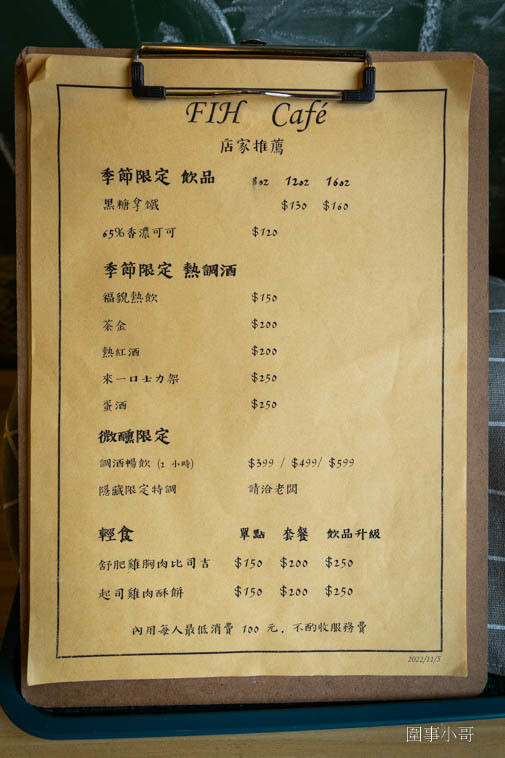 FIH Café
店家推薦
季節限定 飲品 8oz 12oz 16oz
黑糖拿鐵 $130 $160
65%香濃可可 $120
季節限定 熱調酒
福貌熱飲 $150
茶金 $200
熱紅酒 $200
來一口士力架 $250
蛋酒 $250
微醺限定
調酒暢飲 (2 小時) $399 / $499/ $599
隱藏限定特調 請洽老闆
輕食 單點 套餐 飲品升級
舒肥雞胸肉比司吉 $150 $200 $250
起司雞肉酥餅 $150 $200 $250
內用每人最低消費 100 元，不酌收服務費
2022/11/5
圍事小哥